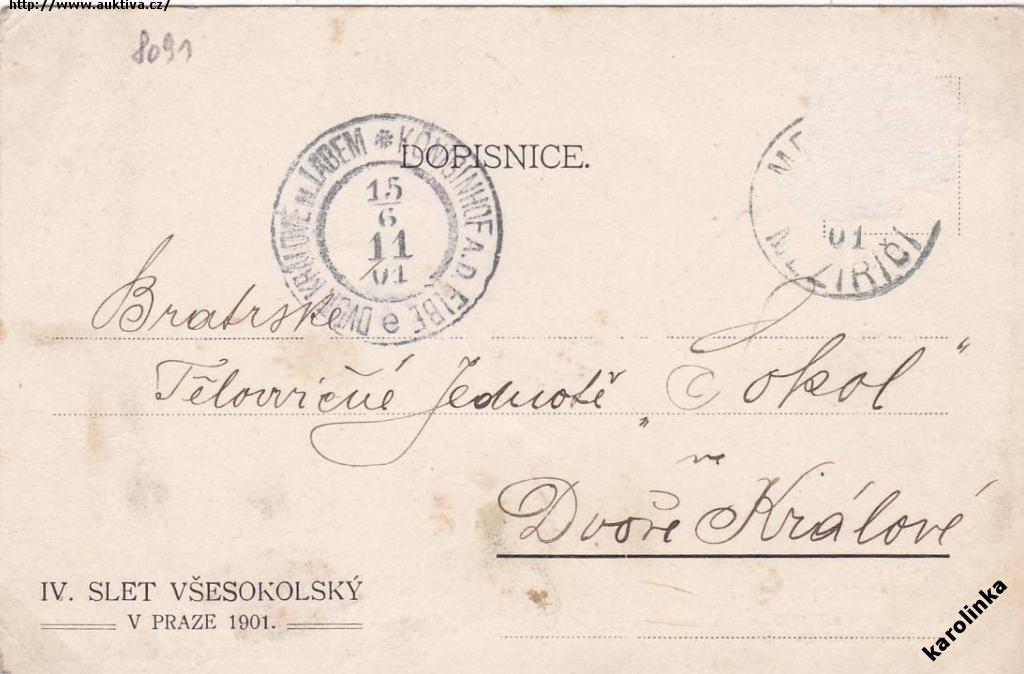 http://www.auktiva.cz/
8091
DOPISNICE.
KÖNIGINHOF A.D. ELBE DVŮR KRÁLOVÉ N. LABEM
15
6
11
01
01
MEZIŘÍČÍ
Bratrské
Tělocvičné Jednotě „Sokol"
ve
Dvoře Králové
IV. SLET VŠESOKOLSKÝ
V PRAZE 1901.
karolinka